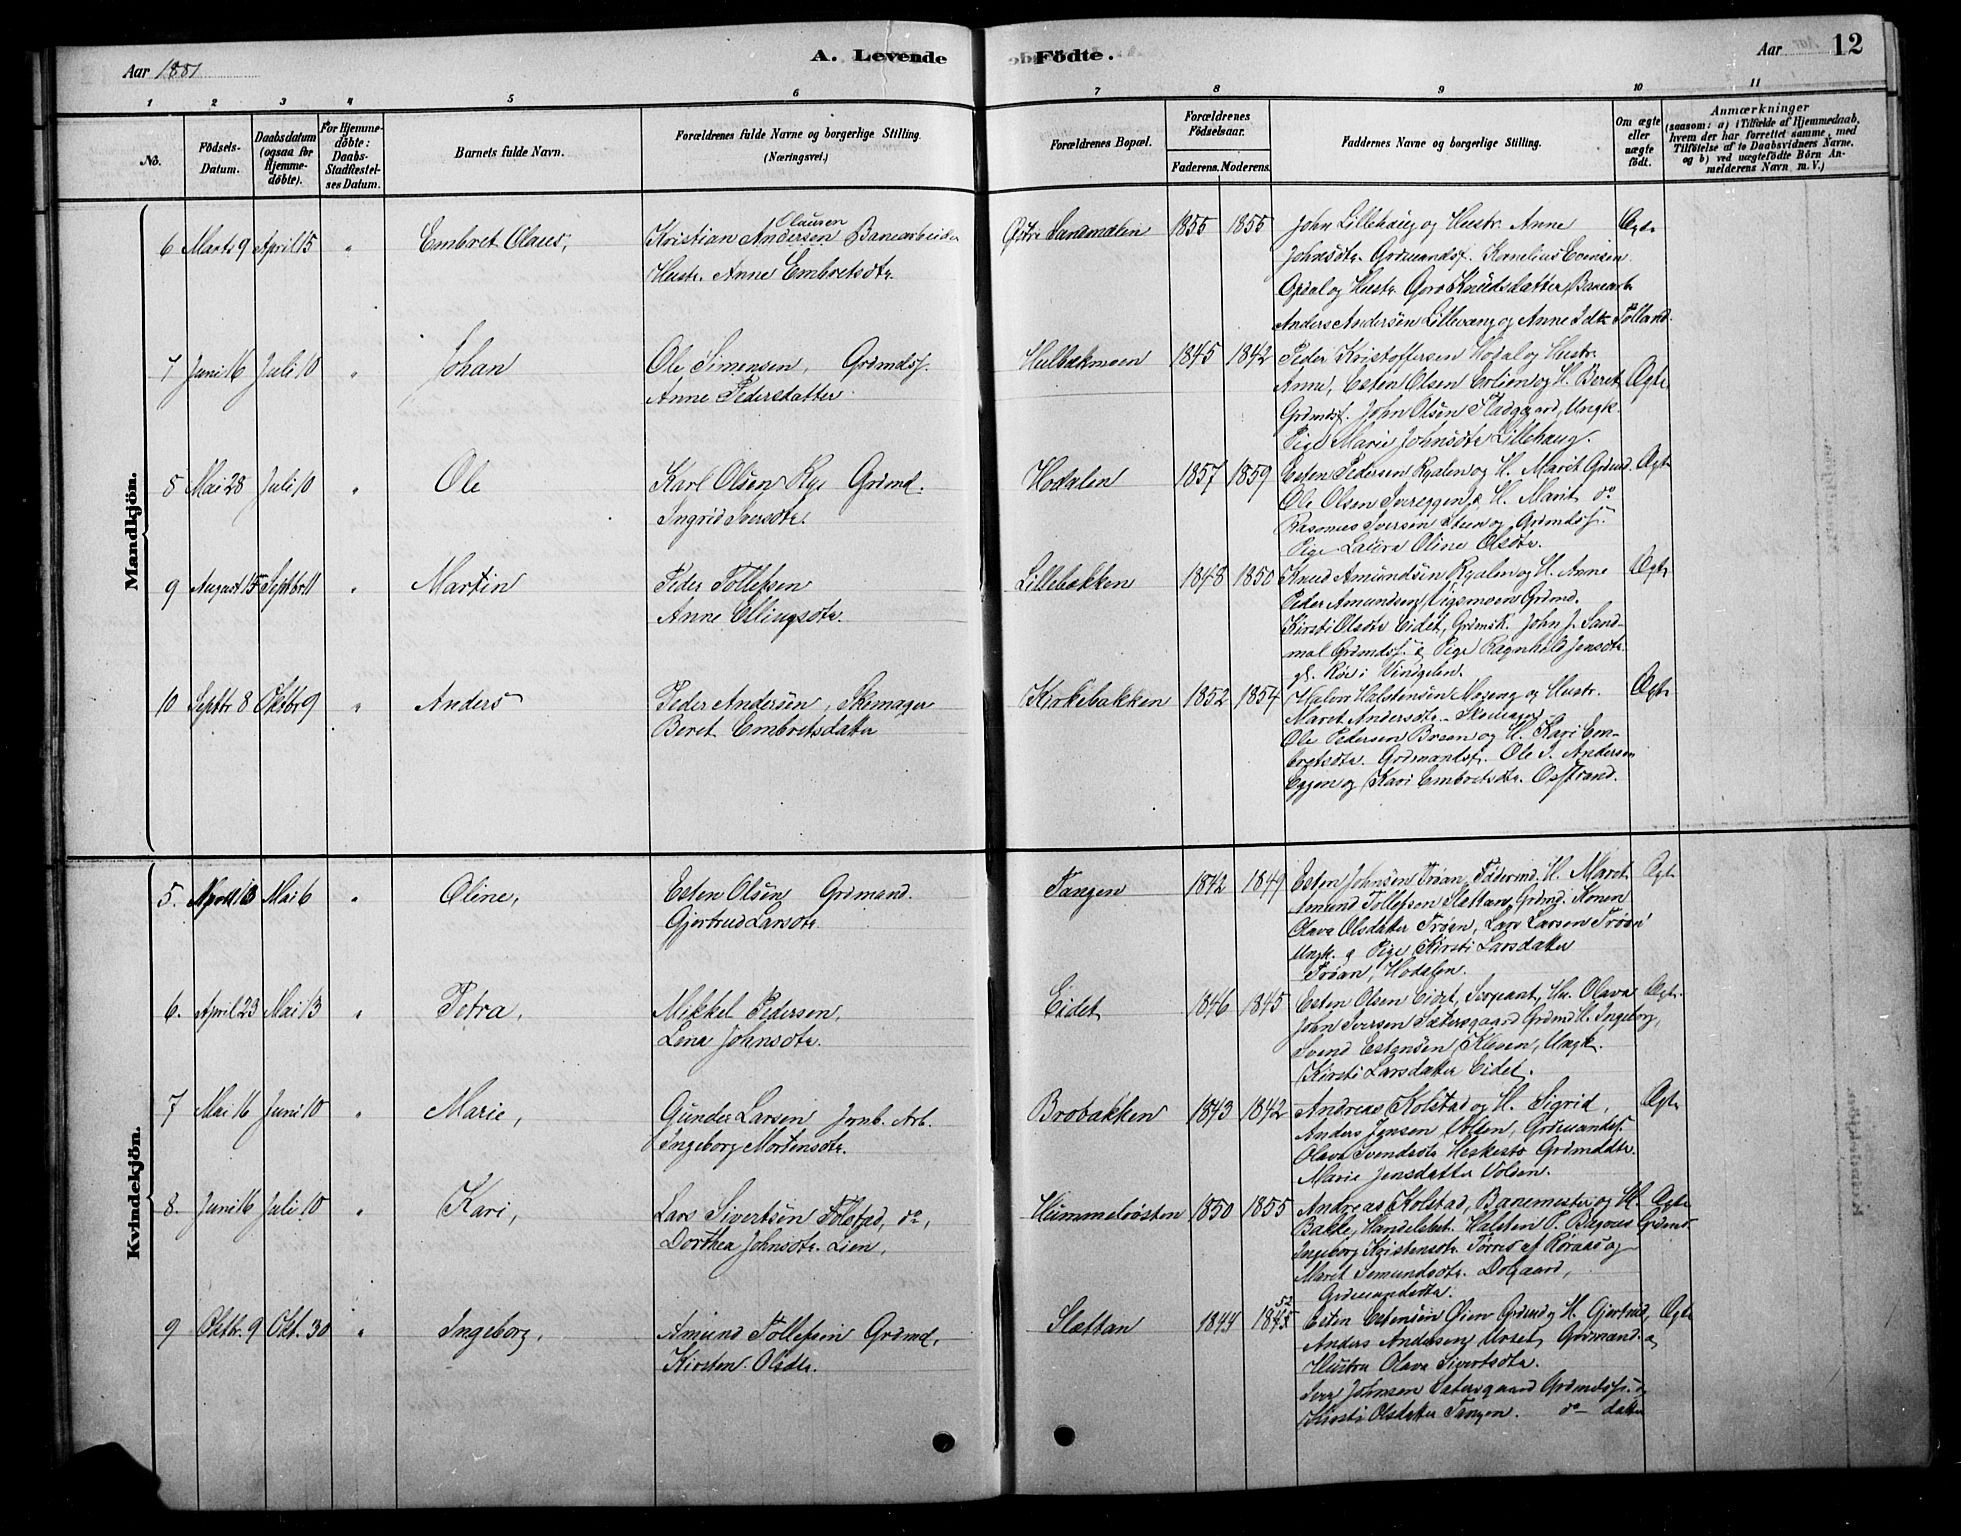 Aar 1881
A. Levende Födte.
Aar 12
1 2 3 4 5 6 7 8 9 10 11
No.
Födsels-Datum.
Daabsdatum (ogsaa for Hjemmedöbte).
For Hjemmedöbte: Daabs-Stadfæstelses Datum.
Barnets fulde Navn.
Forældrenes fulde Navne og borgerlige Stilling. (Næringsvei.)
Forældrenes Bopæl.
Forældrenes Födselsaar.
Faderens. Moderens.
Faddernes Navne og borgerlige Stilling.
Om ægte eller uægte födt.
Anmærkninger
(saasom: a) i Tilfælde af Hjemmedaab, hvem der har forrettet samme, med Tilföielse af to Daabsvidners Navne. og b) ved uægtefödte Börn Anmelderens Navn m. V.)
Mandkjön.
6 Marts 9 April 15 " Embret Olaus,
Olausen
Kristian Andersen Banearbeider
Hustr. Anne Embretsdtr.
1855 1855
John Lillehaug og Hustr. Anne
Johnsdtr. Grdmandsf. Kornelius Evensen
Opdal og Hustr. Goro Knudsdatter, Banearb.
Anders Andersen Lillevang og Anne Tolland.
Ægte
7 Juni 16 Juli 10 " Johan
Ole Simensen, Grdmdsf.
Anne Pedersdatter
Hulbakmoen 1845 1842
Peder Kristoffersen Hodal og Hustr.
Anne, Esten Olsen og H. Beret
Grdmdsf. John Olsen Fladgaard, Ungk.
Pige Marie Johnsdtr Lillehaug.
Ægte
8 Mai 28 Juli 10 " Ole
Karl Olsen Rye Grdmd.
Ingrid Iversdtr.
Hodalen 1857 1859
Esten Pedersen Ryalen og H. Marit Grdmd.
Ole Olsen & H. Marit do
Rasmus Iversen Steen og Grdmdsf.
Pige Laura Oline Olsdtr.
Ægte
9 August 15 Septbr 11 " Martin
Peder Tollefsen
Anne Ellingsdtr.
Lillebakken 1848 1850
Knud Amundsen Ryalen og H. Anne
Peder Amundsen Vigsmoen Grdmd.
Kirsti Olsdtr Eidet, John J. Sand-
mal Grdmdsf. & Pige Ragnhild Jensdtr.
gl. Røe i Vindgelen.
Ægte
10 Septbr 8 Oktbr 9 " Anders
Peder Andersen, Skomager
Beret Embretsdatter
Kirkebakken 1852 1854
Halvor Halstensen Moseng og Hustr.
Maret Andersdtr. Skomager
Ole Pedersen Moen og H. Kari Em-
bretsdtr. Grdmandsf. Ole P. Andersen
Eggen og Kari Embretsdtr. Osstrand.
Ægte
Kvindekjön.
5. April 13 Mai 6 " Oline,
Esten Olsen Grdmand.
Gjertrud Larsdtr.
Tangen 1842 1849
Esten Johnsen Trøan, H. Maret
Amund Tollefsen Slettan, Grdmd. Konen
Olava Olsdatter Trøen, Lars Larsen Trøan
Ungk. & Pige Kirsti Larsdatter
Trøan, Hodalen.
Ægte
6. April 23 Mai 13 " Petra,
Mikkel Pedersen,
Lena Johnsdtr.
Eidet 1846 1845
Esten Olsen Eidet, Sergeant, Hu. Olava
John Iversen Sætersgaard Grdmd H. Ingeborg,
Svend Estensen Kleven, Ungk.
Kirsti Larsdatter Eidet.
Ægte
7 Mai 16 Juni 10 " Marie,
Gunder Larsen Jernb. Arb.
Ingeborg Mortensdtr.
Brobakken 1843 1842
Andreas Kolstad og H. Sigrid,
Anders Jensen Volen, Grdmandsf.
Olava Svendsdtr Heskesto Grdmddtr.
Marie Jensdatter Volden.
Ægte
8. Juni 16 Juli 10 " Kari,
Lars Sivertsen Tolstad, do,
Dorthea Johnsdtr. Lien,
Hummelvosten 1850 1855
Andreas Kolstad, Banemester og H.
Bakke, Handelsbet. Halsten P. Grdmd.
Ingeborg Kristensdtr. Tørres af Røraas og
Maret Semundsdtr. Dalgaard,
Grdmandsdtr.
Ægte
9 Oktbr. 9 Okt. 30 " Ingeborg,
Amund Tollefsen Grdmd,
Kirsten Olsdtr.
Slettan 1844 1845 52
Esten Estensen Øien Grdmd og H. Gjertrud,
Anders Andersen Urset, Grdmand. &
Hustru Olava Sivertsdtr.
Iver Johnsen Sætersgaard Grdmdsf. og
Kirsti Olsdatter Tangen. do- datter
Ægte